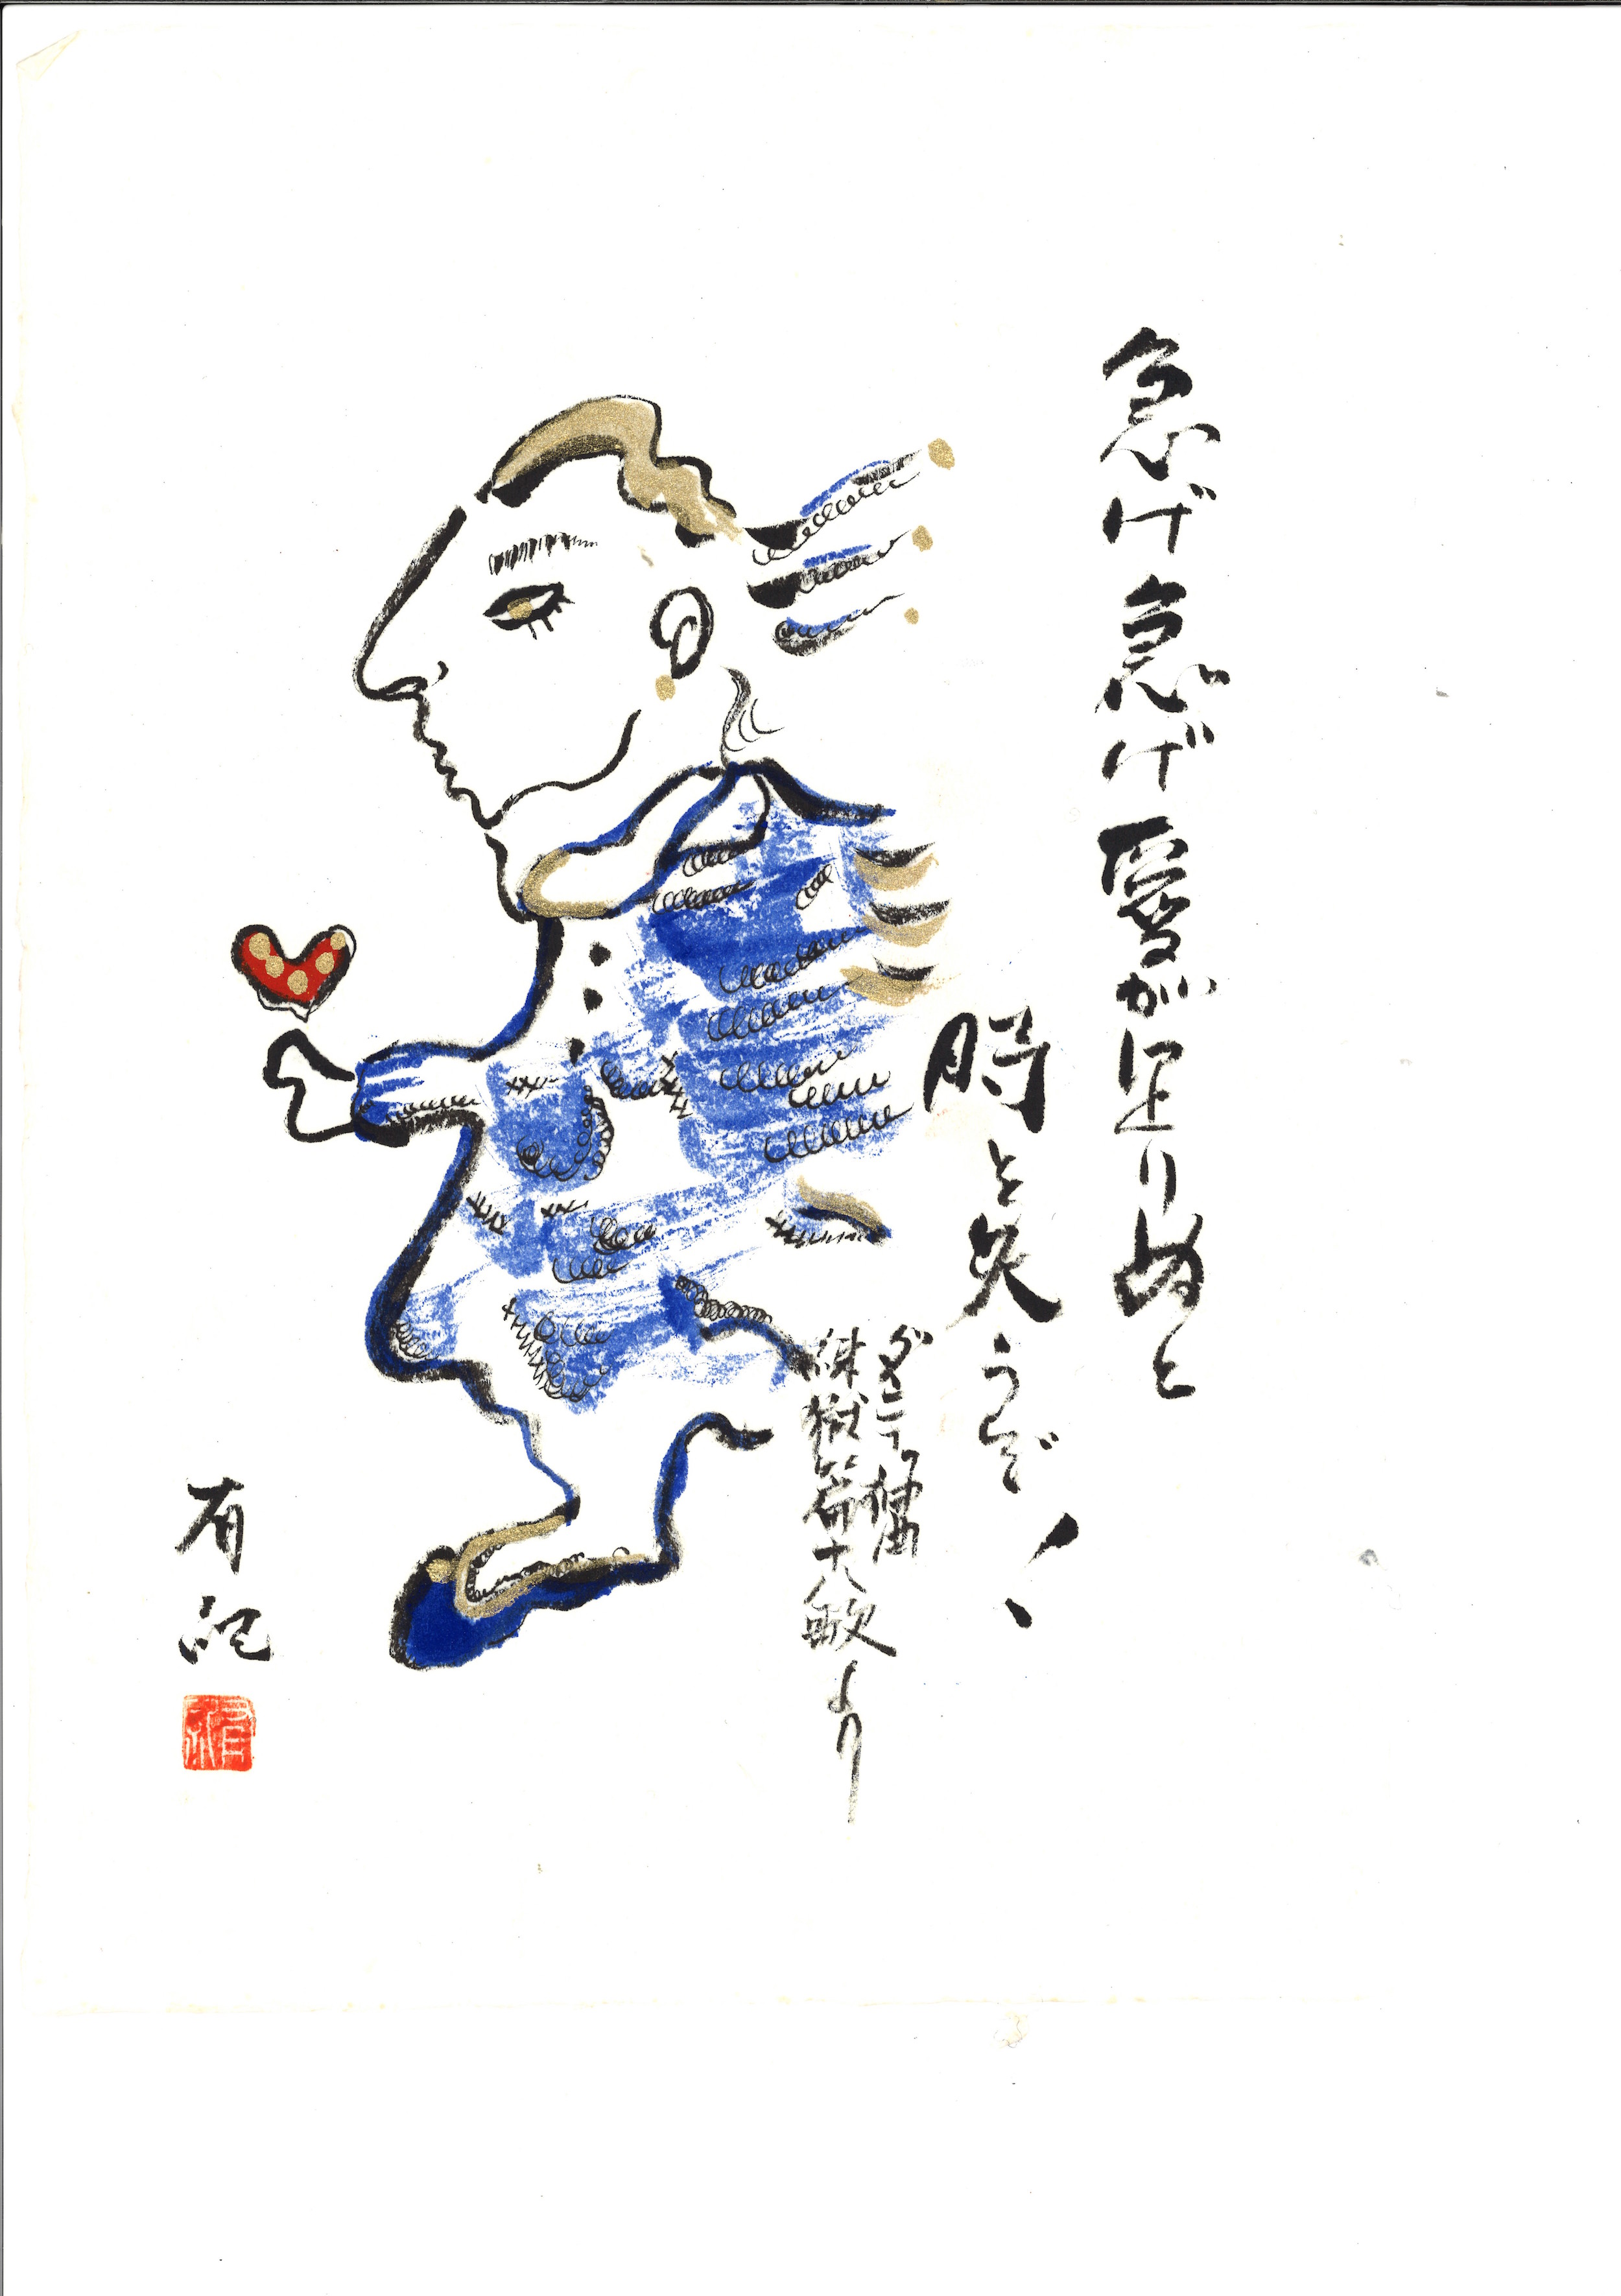 急げ急げ愛が足りぬと
時を失うぞ!
ダンテ神曲
煉獄篇十八歌より
有記